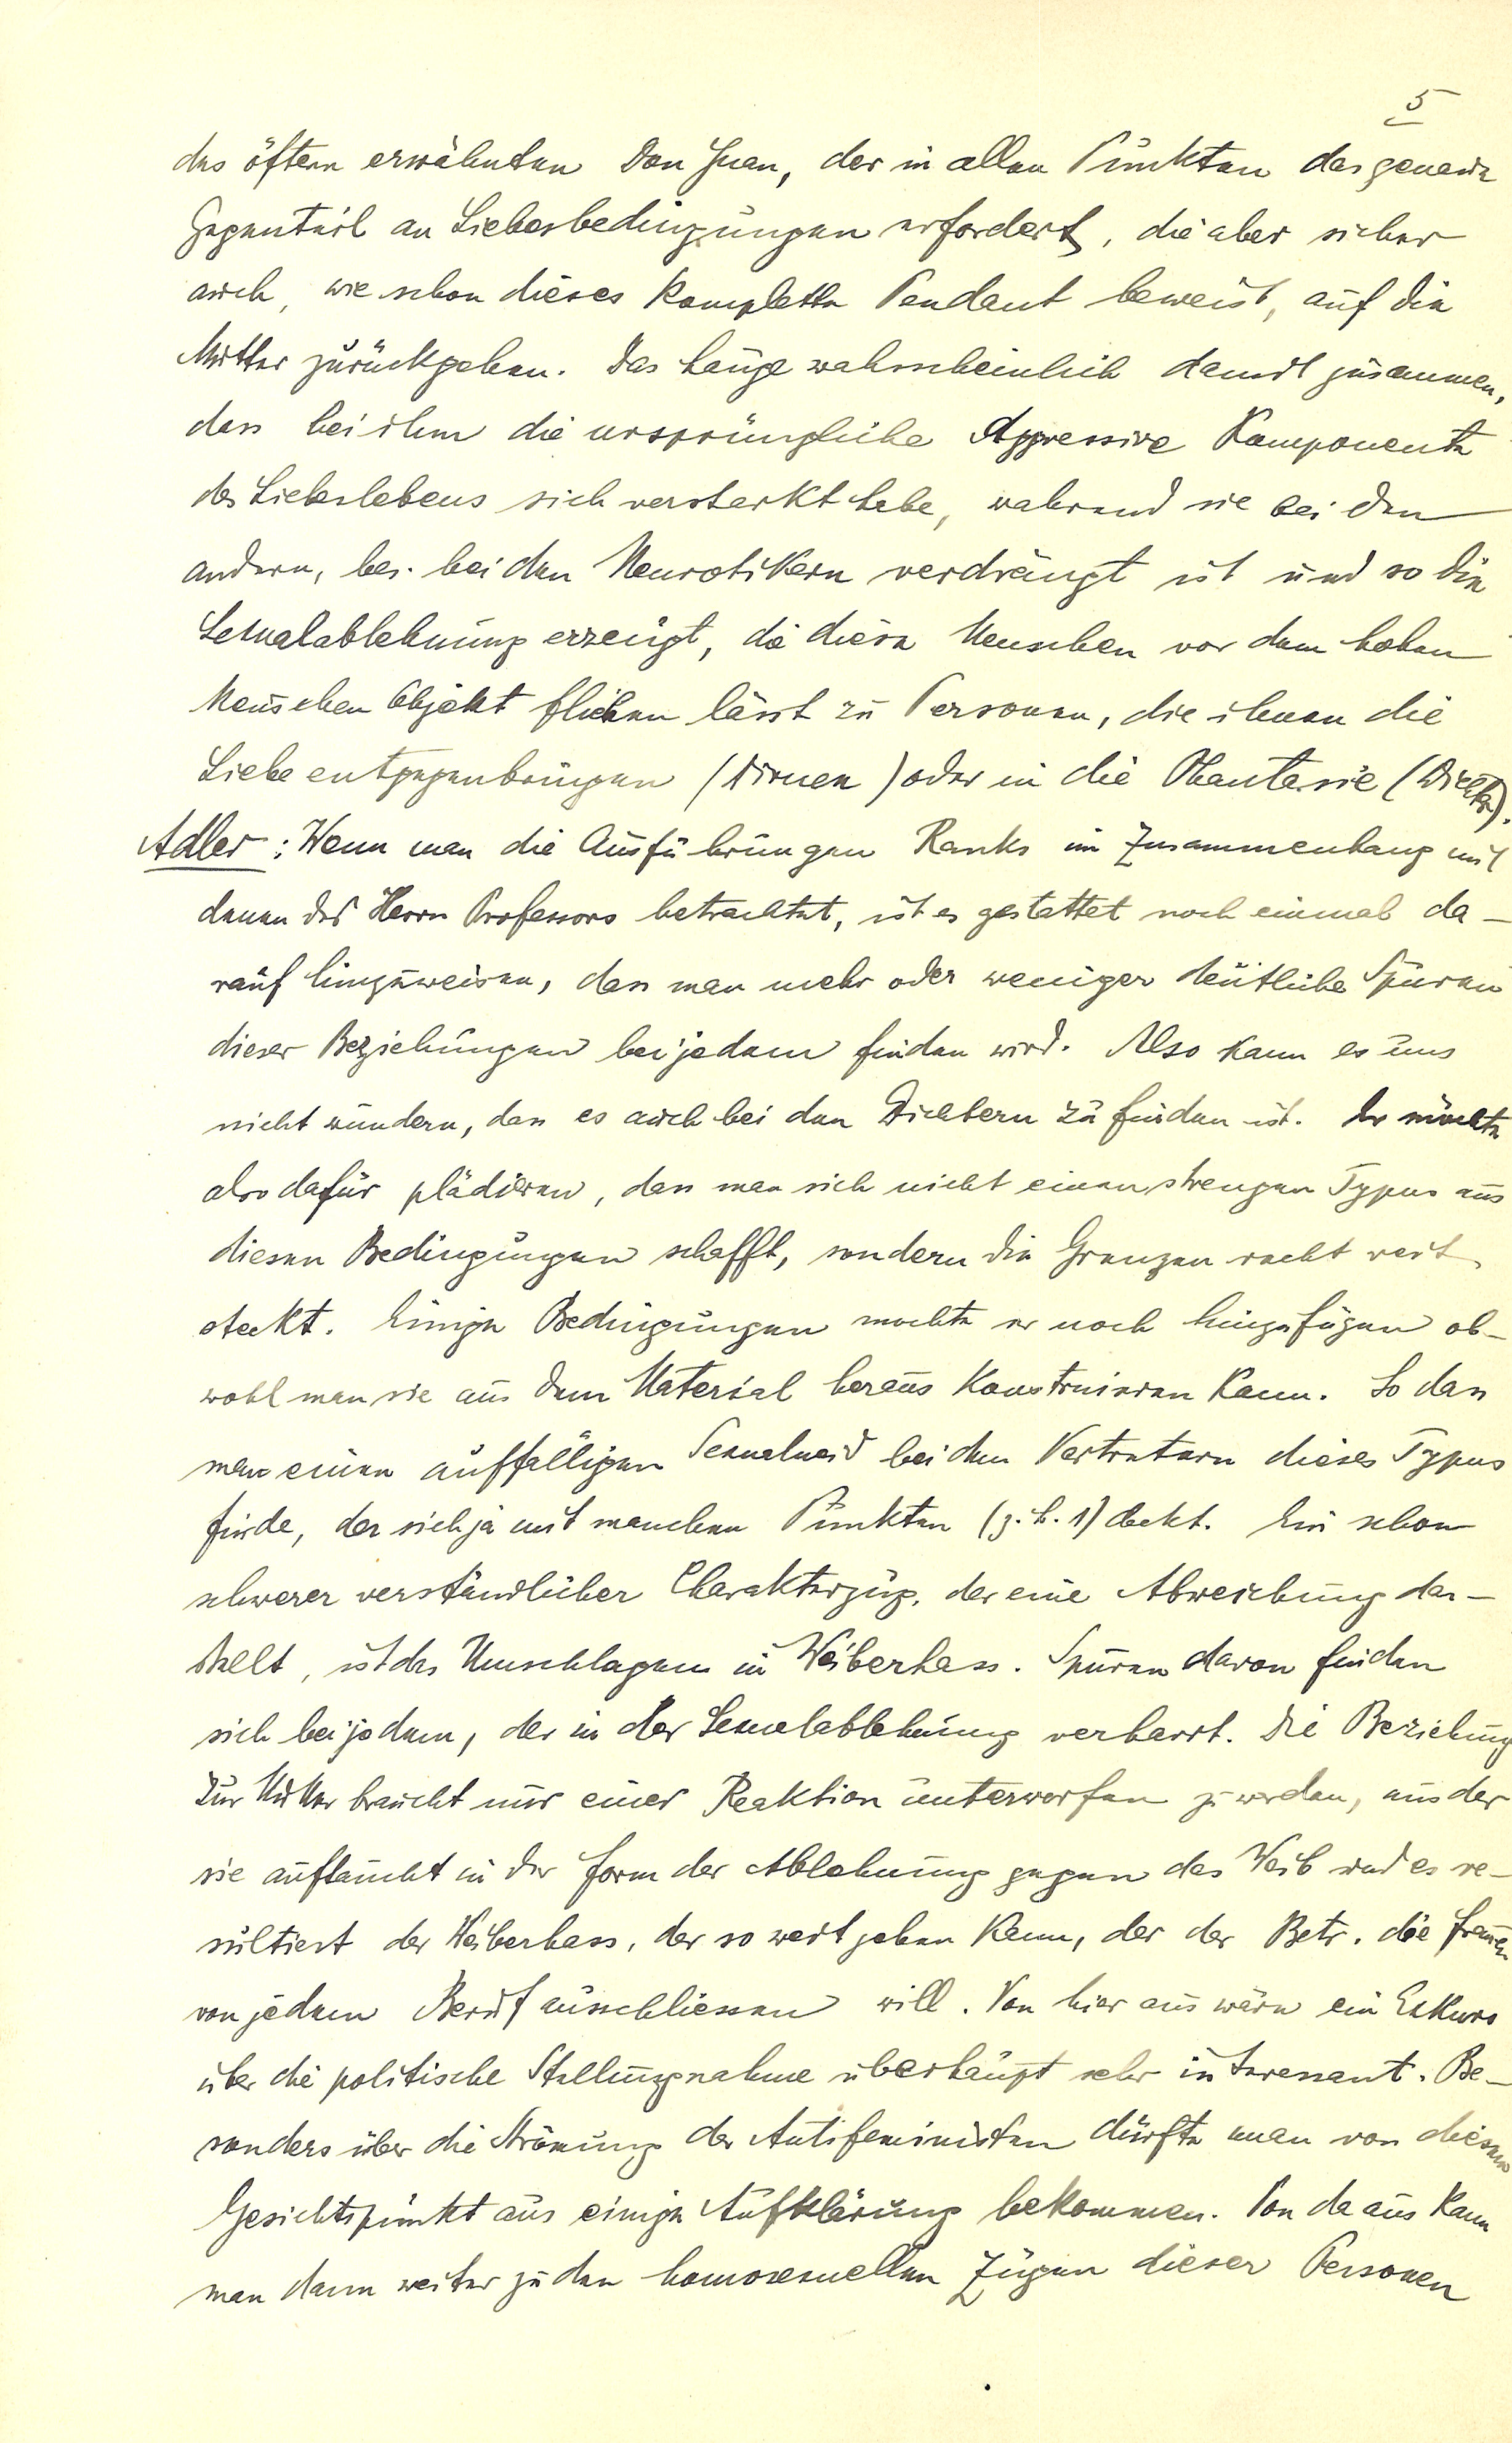 5
des öftern erwähnten Don Juan, der in allen Punkten das genaue
Gegenteil an Liebesbedingungen erfordert, die aber sicher
auch, wie schon dieses komplette Pendant beweist, auf die
Mutter zurückgehen. Das hänge wahrscheinlich damit zusammen,
dass bei ihm die ursprüngliche Aggressive Komponente
des Liebeslebens sich verstärkt habe, während sie bei den
andern, bes. bei den Neurotikern verdrängt ist und so die
Sexualablehnung erzeugt, die diese Menschen vor dem hohen
keuschen Objekt fliehen lässt zu Personen, die ihnen die
Liebe entgegenbringen (Dirnen) oder in die Phantasie (Dichter).
Adler: Wenn man die Ausführungen Ranks im Zusammenhang mit
denen des Herrn Professors betrachtet, ist es gestattet noch einmal da-
rauf hinzuweisen, dass man mehr oder weniger deutliche Spuren
dieser Beziehungen bei jedem finden wird. Also kann es uns
nicht wundern, dass es auch bei den Dichtern zu finden ist. Er möchte
also dafür plädieren, dass man sich nicht einen strengen Typus aus
diesen Bedingungen schafft, sondern die Grenzen recht weit
steckt. Einige Bedingungen mochte er noch hinzufügen ob-
wohl man sie aus dem Material heraus konstruieren kann. So dass
man einen auffälligen Sexualneid bei den Vertretern dieses Typus
finde, der sich ja mit manchen Punkten (z. b. 1) deckt. Ein schon
schwerer verständlicher Charakterzug, der eine Abweichung dar-
stellt, ist das Umschlagen in Weiberhass. Spuren davon finden
sich bei jedem, der in der Sexualablehnung verharrt. Die Beziehung
zur Mutter braucht nur einer Reaktion unterworfen zu werden, aus der
sie auftaucht in der Form der Ablehnung gegen das Weib und es re-
sultiert der Weiberhass, der so weit gehen kann, das der Betr. die Frauen
von jedem Beruf ausschliessen will. Von hier aus wäre ein Exkurs
über die politische Stellungnahme überhaupt sehr interessant. Be-
sonders über die Strömung der Antifeministen dürfte man von diesem
Gesichtspunkt aus einige Aufklärung bekommen. Von da aus kann
man dann weiter zu den homosexuellen Zügen dieser Personen